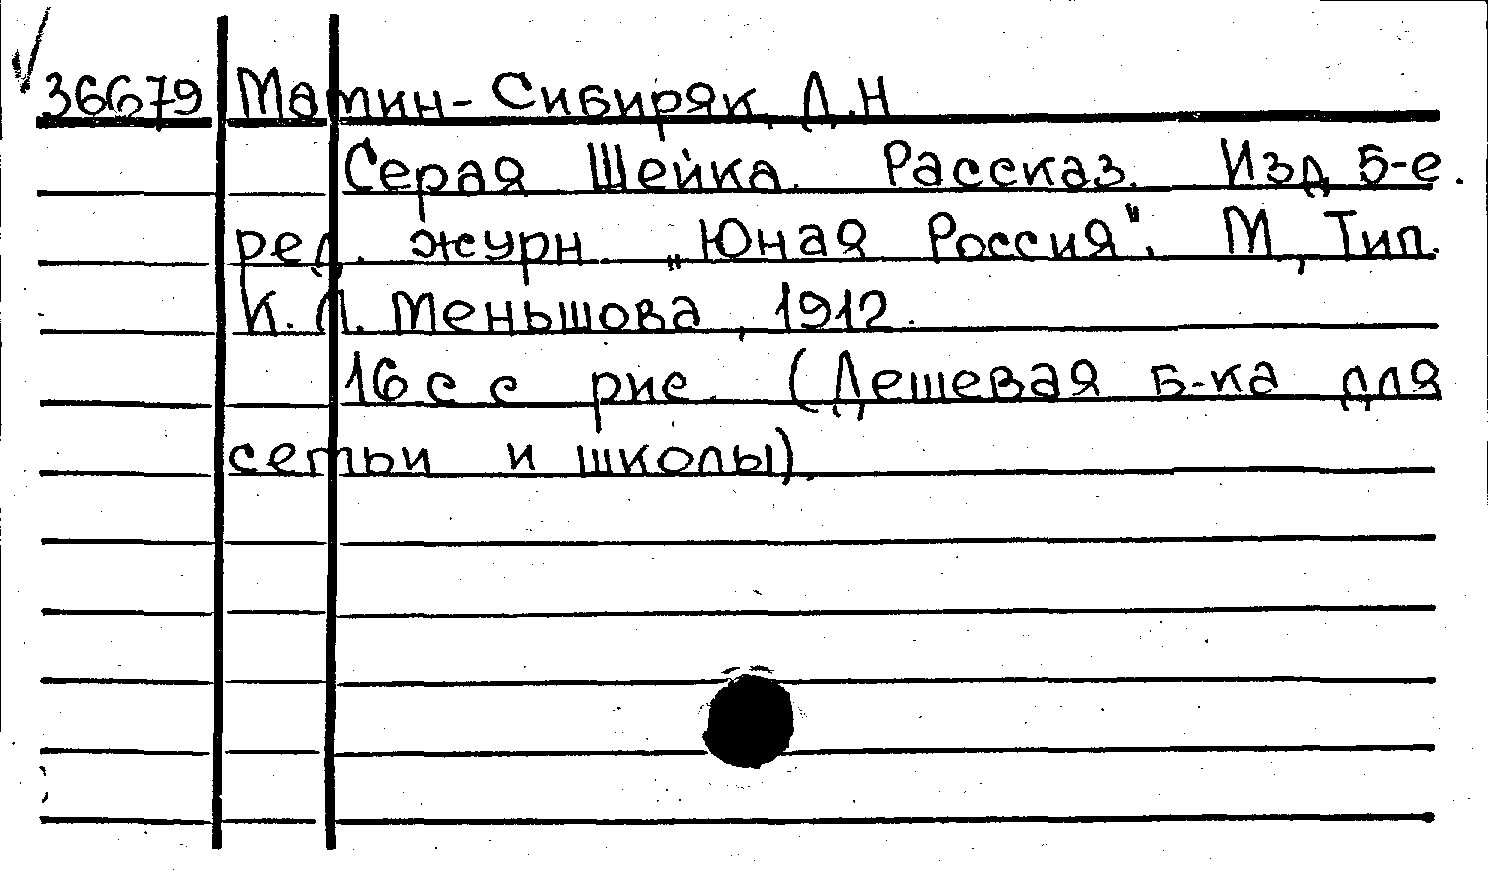 36679 Мамин-Сибиряк, Д.Н
Серая Шейка. Рассказ. Изд 5-е.
ред. журн. „Юная Россия". М, Тип.
К.Л. Меньшова, 1912.
16 с с рис. (Дешевая б-ка для
семьи и школы).